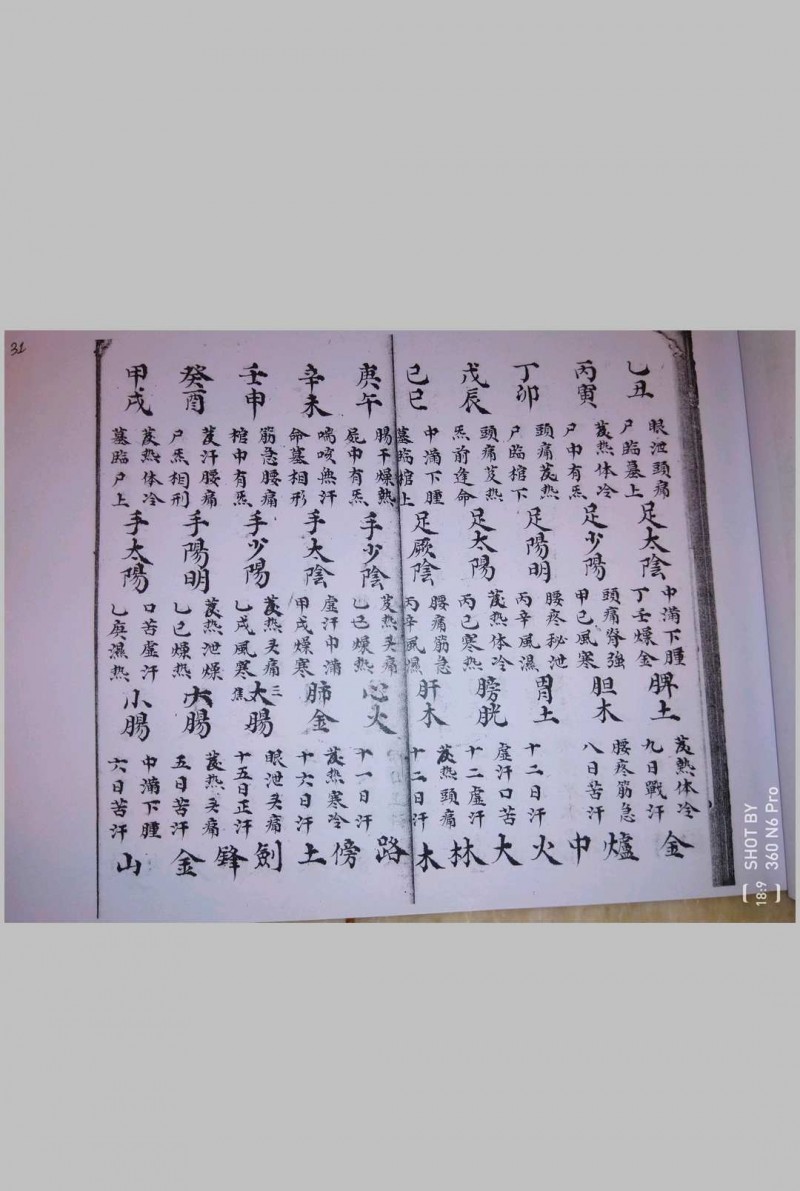 31
乙丑
眼泄頭痛
尸臨墓上
足太陰
中滿下腫
丁壬燥金
脾土
發熱体冷
九日戰汗
金
丙寅
發热体冷
尸中有炁
足少陽
頭痛脊強
甲己風寒
胆木
腰疼筋急
八日苦汗
爐
丁卯
頭痛發热
尸臨棺下
足陽明
腰疼秘泄
丙辛風濕
胃土
十二日汗
中
火
戊辰
頭痛發热
炁前逢命
足太陽
發热体冷
丙己寒热
膀胱
虛汗口苦
十二虛汗
大
林
己巳
中滿下腫
墓臨棺上
足厥陰
腰痛筋急
丙辛風濕
肝木
發热頭痛
十二日汗
木
庚午
腸干燥熱
屍中有炁
手少陰
發热头痛
乙己燥熱
心火
十一日汗
路
辛未
喘咳無汗
命墓相形
手太陰
虛汗中滿
甲戌燥寒
肺金
發热寒冷
十六日汗
傍
土
壬申
筋急腰痛
棺中有炁
手少陽
發热头痛
乙戌風寒
三焦
大腸
眼泄头痛
十五日正汗
劍
鋒
癸酉
發汗腰痛
尸炁相刑
手陽明
發热泄燥
乙己燥热
大腸
發热头痛
五日苦汗
金
甲戌
發热体冷
墓臨尸上
手太陽
口苦虛汗
乙庚濕热
小腸
中滿下腫
六日苦汗
山
SHOT BY
360 N6 Pro
18:9